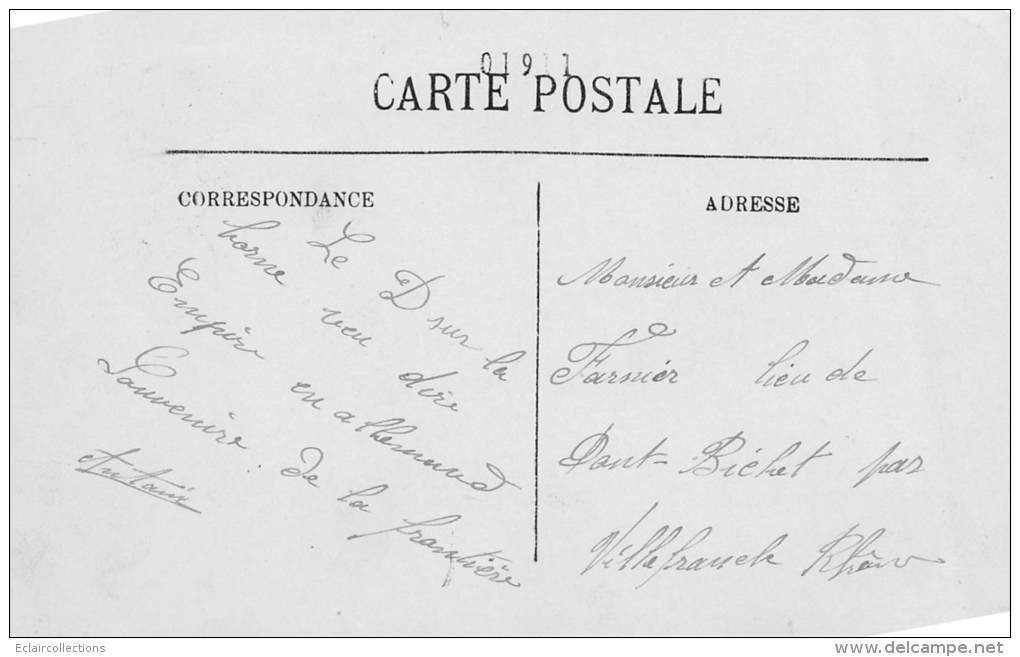 01911
CARTE POSTALE
CORRESPONDANCE
Le D sur la
borne veu dire
Empire en allemand
Souvenire de la frontière
Antoni
ADRESSE
Monsieur et Madame
Farnier lieu de
Pont-Bichet par
Villefranck Rhône
Eclaircollections
www.delcampe.net